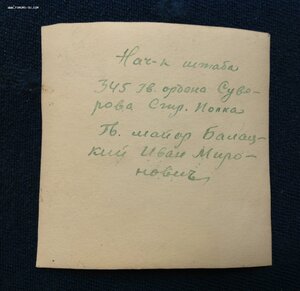 Нач-к штаба
345 Гв. ордена Суво-
рова Стр. Полка
Гв. майор Балац-
кий Иван Миро-
нович